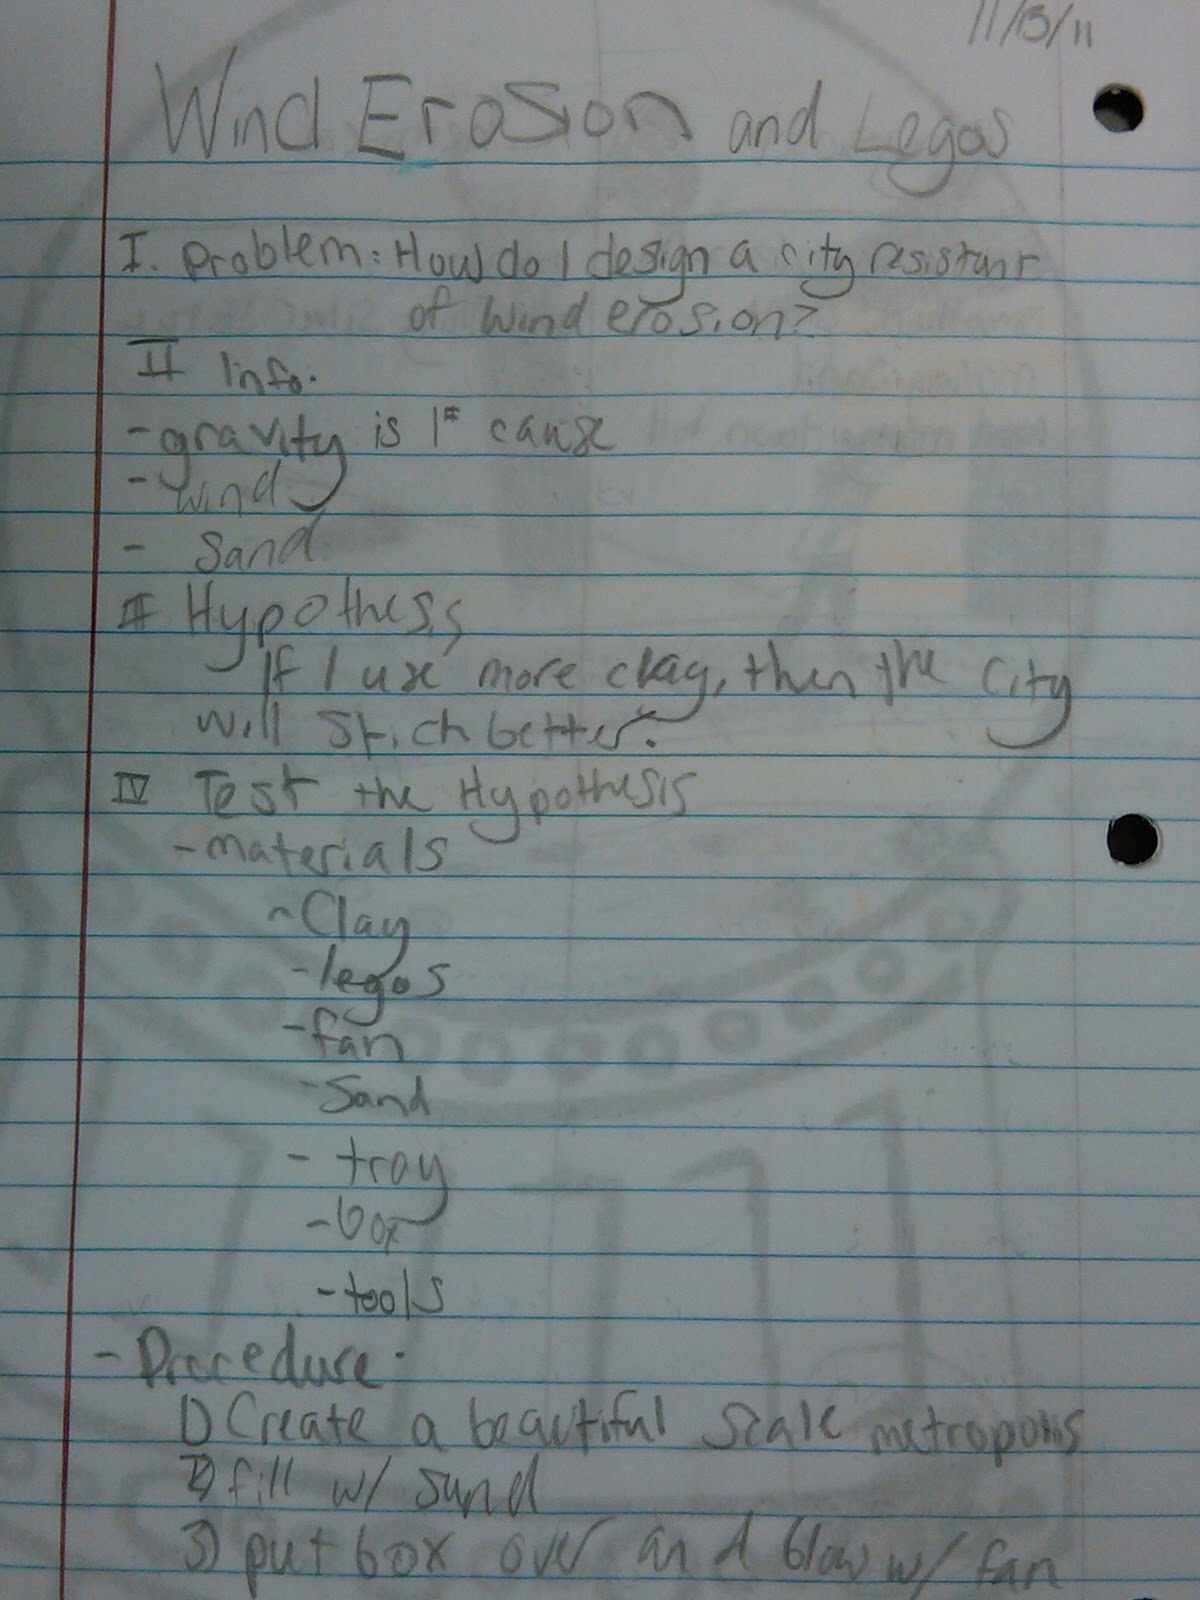 11/15/11
Wind Erosion and Legos
I. Problem: How do I design a city resistant
of wind erosion?
II Info.
- gravity is 1# cause
- wind
- Sand
II Hypothesis
If I use more clay, then the city
will stick better.
IV Test the Hypothesis
- materials
- Clay
- legos
- fan
- Sand
- tray
- box
- tools
- Procedure.
1) Create a beautiful Scale metropolis
2) fill w/ sand
3) put box over and blow w/ fan